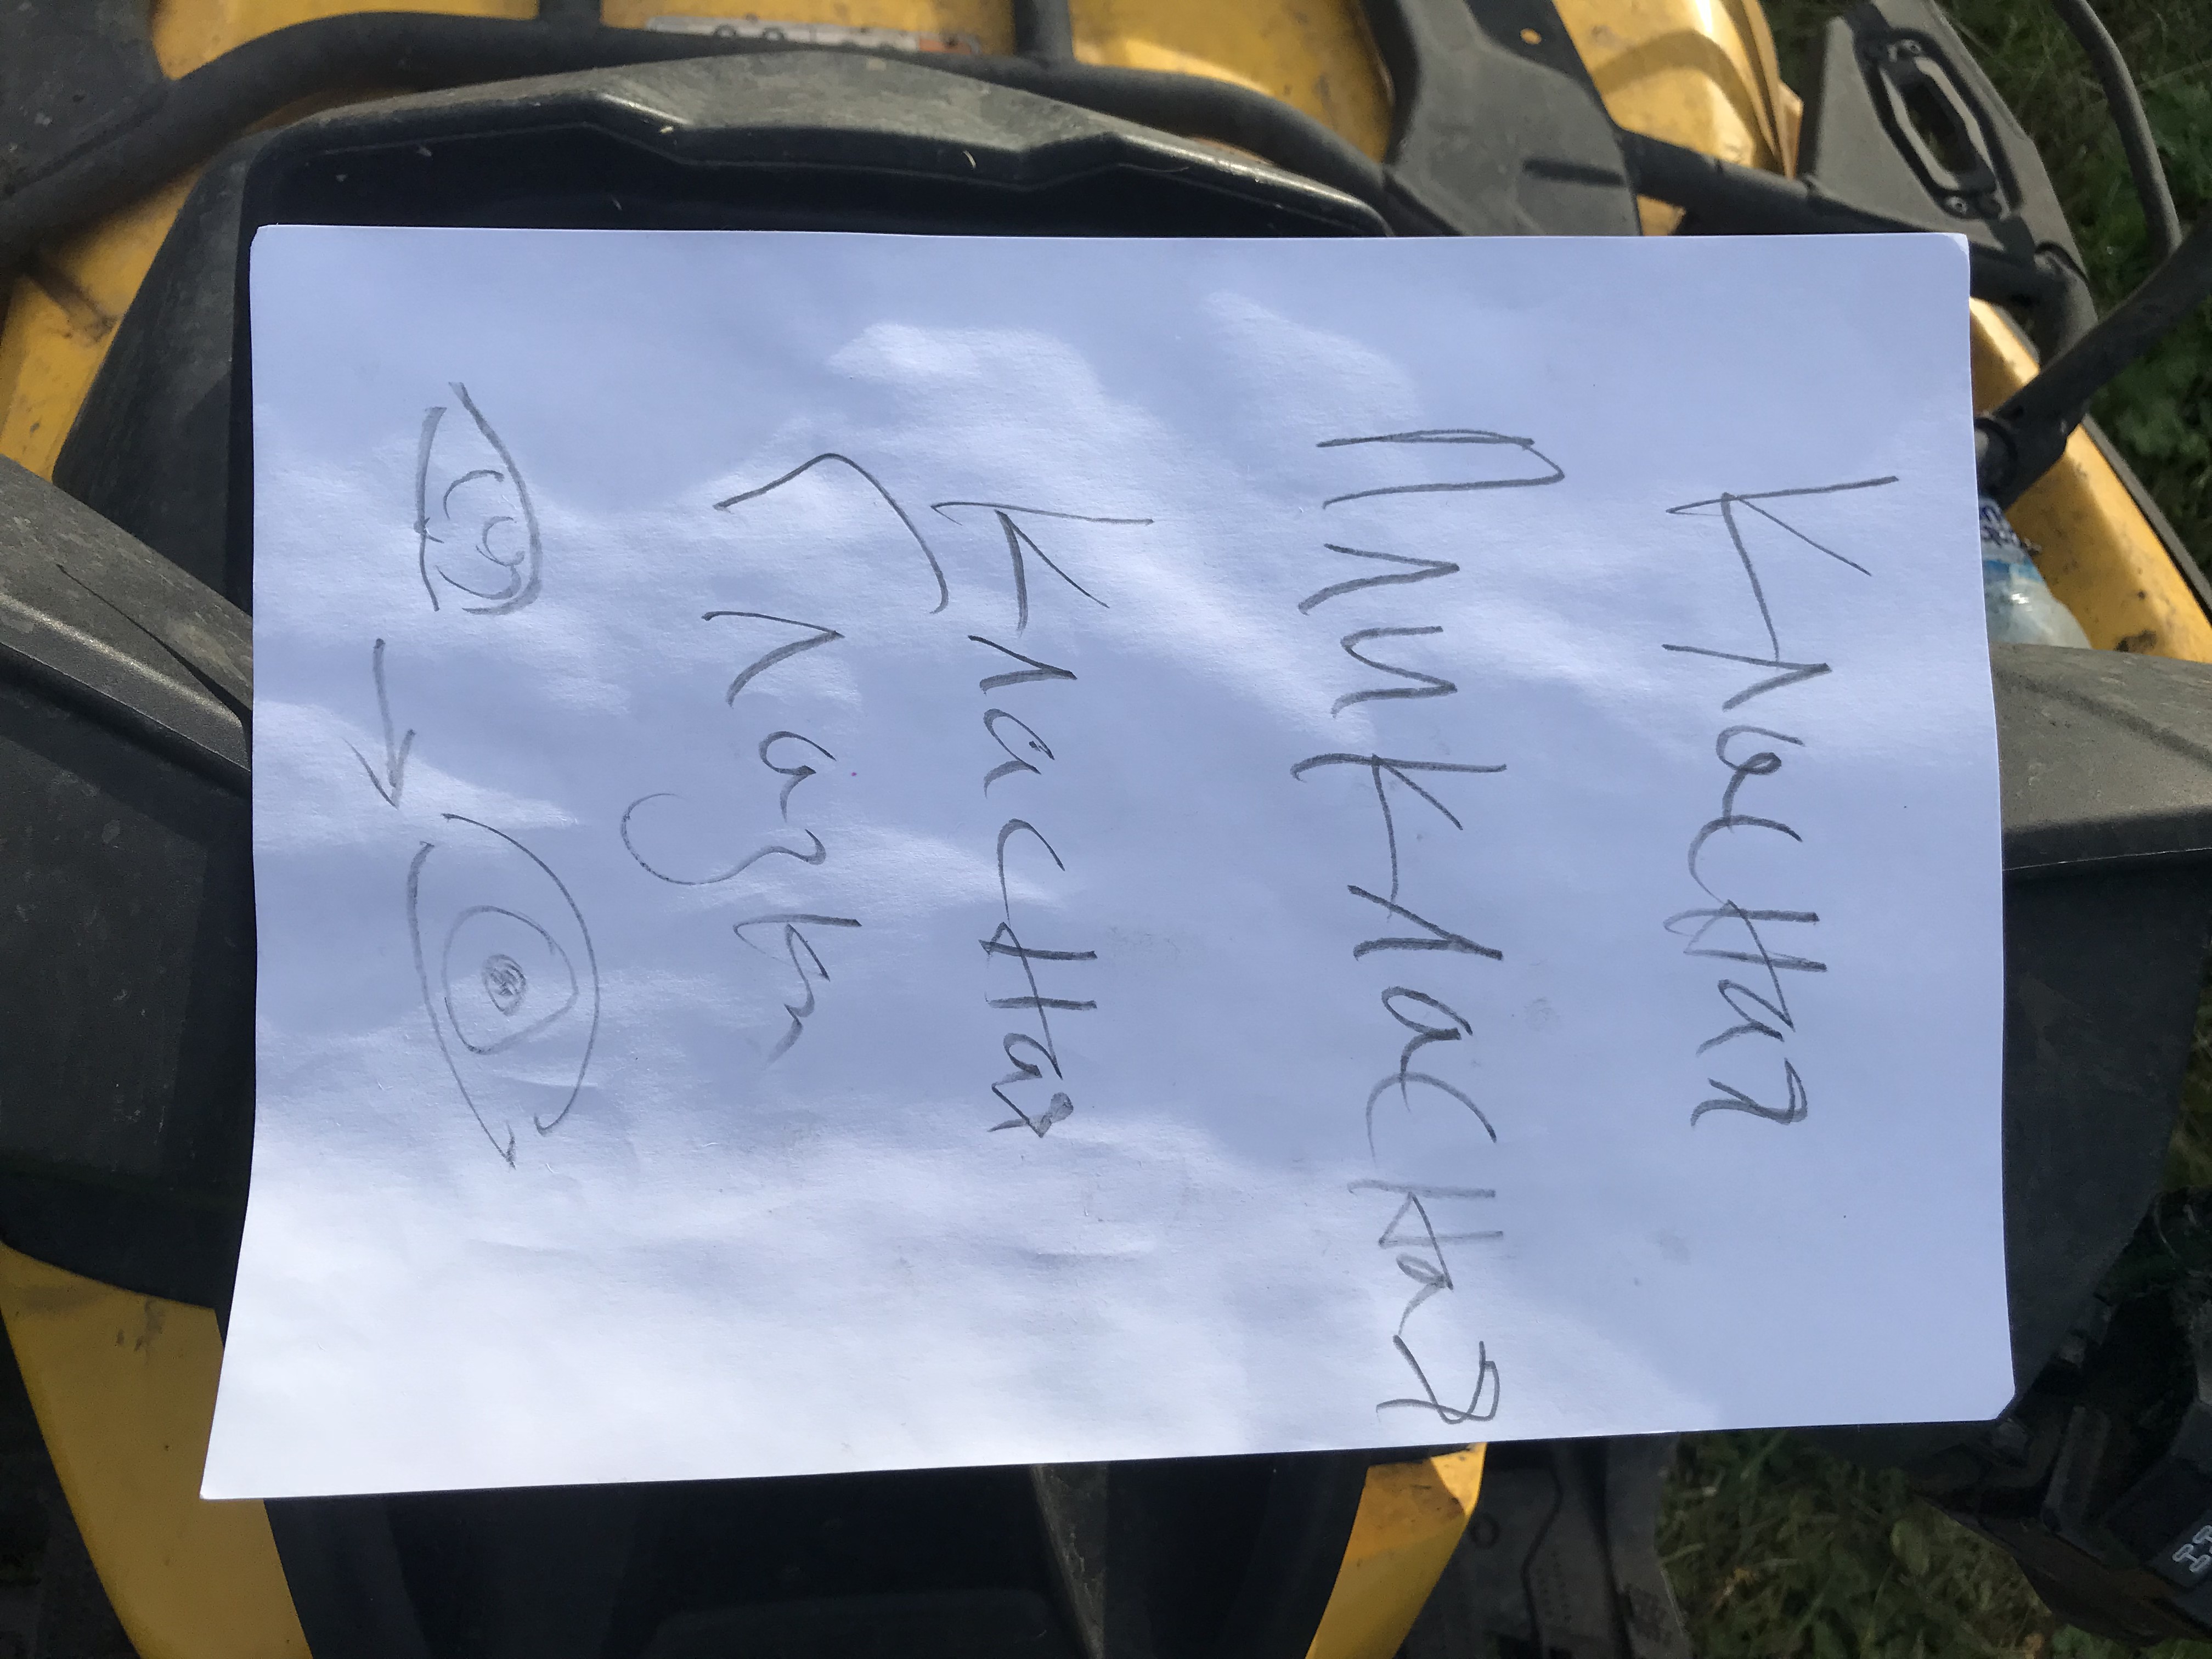 Класная
Пликласная
Класная
Глазки